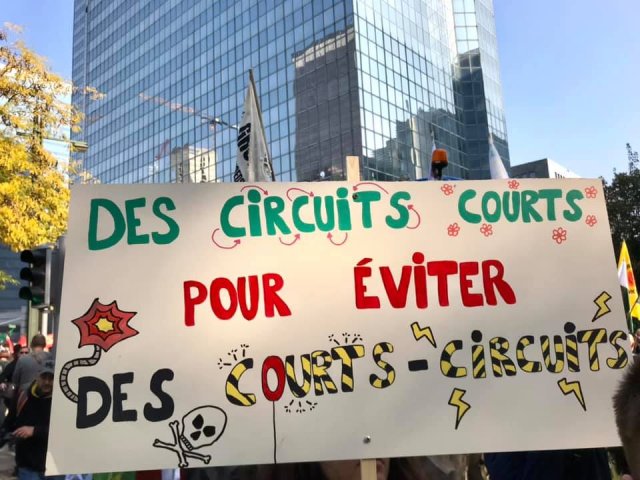 DES CIRCUITS COURTS
POUR ÉVITER
DES COURTS-CIRCUITS